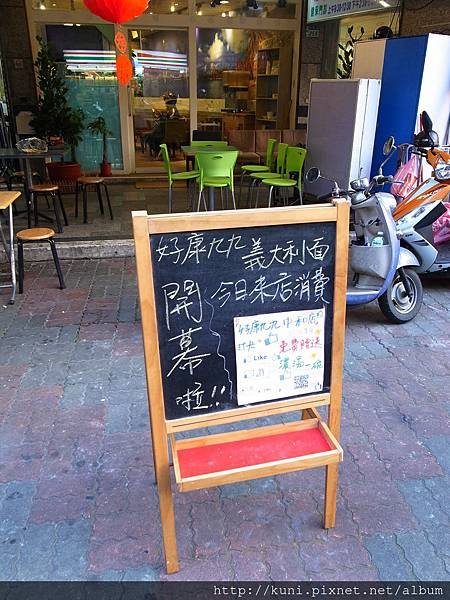 好康九九義大利面
開幕啦!!
今日來店消費
好康九九中和店
打卡
Like
免費送
濃湯一碗
http://kuni.pixnet.net/album